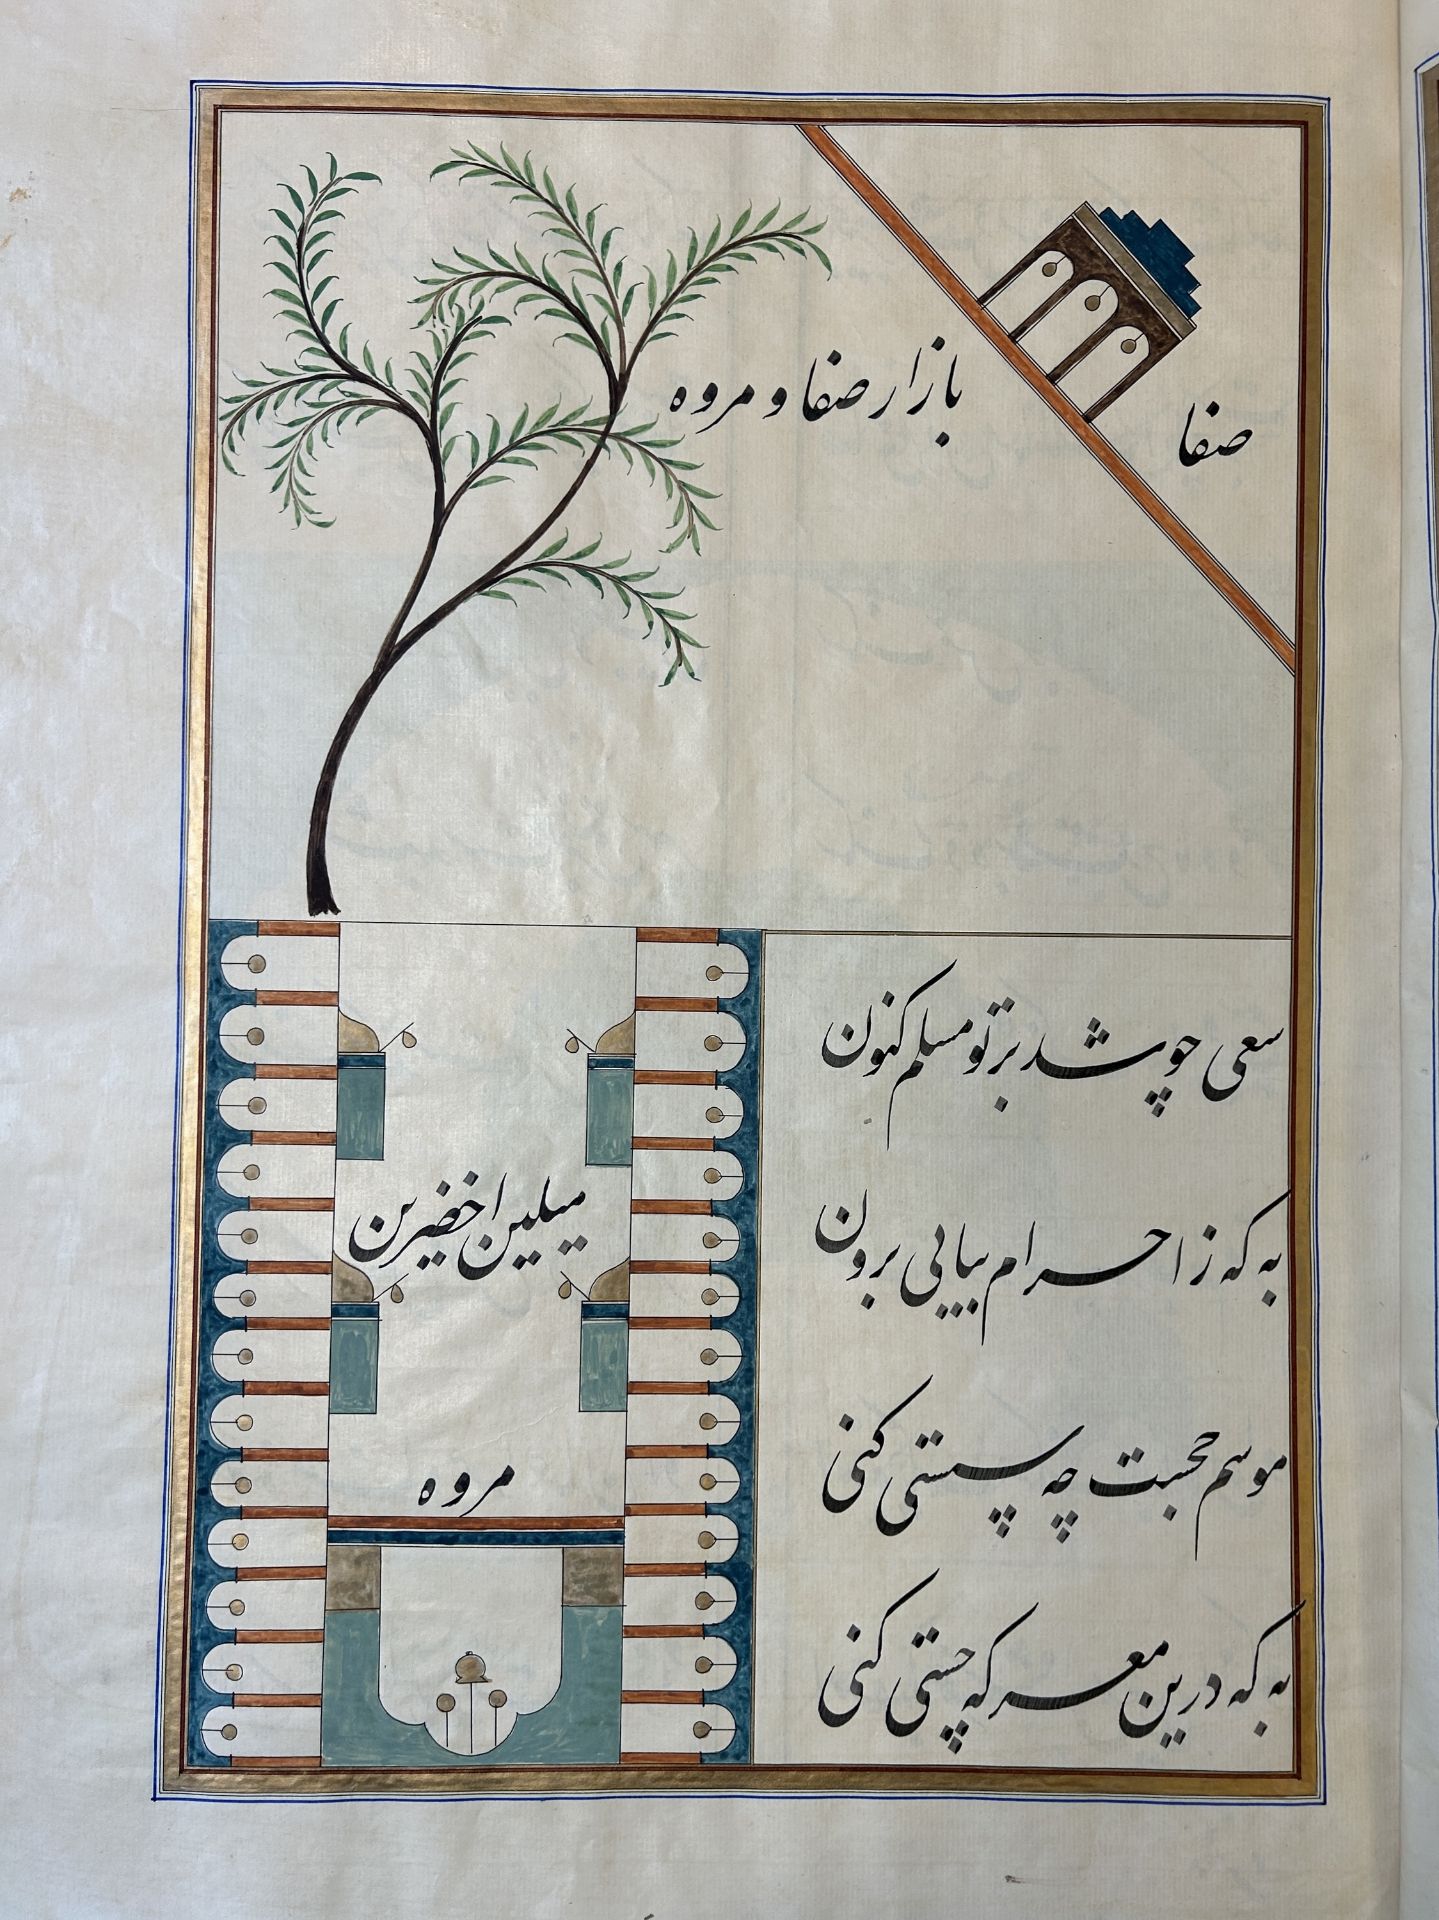 صفا
بازار صفا و مروه
سعی چو شد بر تو مسلم کنون
به که ز احرام بیایی برون
میلین اخضرین
موسم حجست چه سستی کنی
مروه
به که درین معرکه چستی کنی